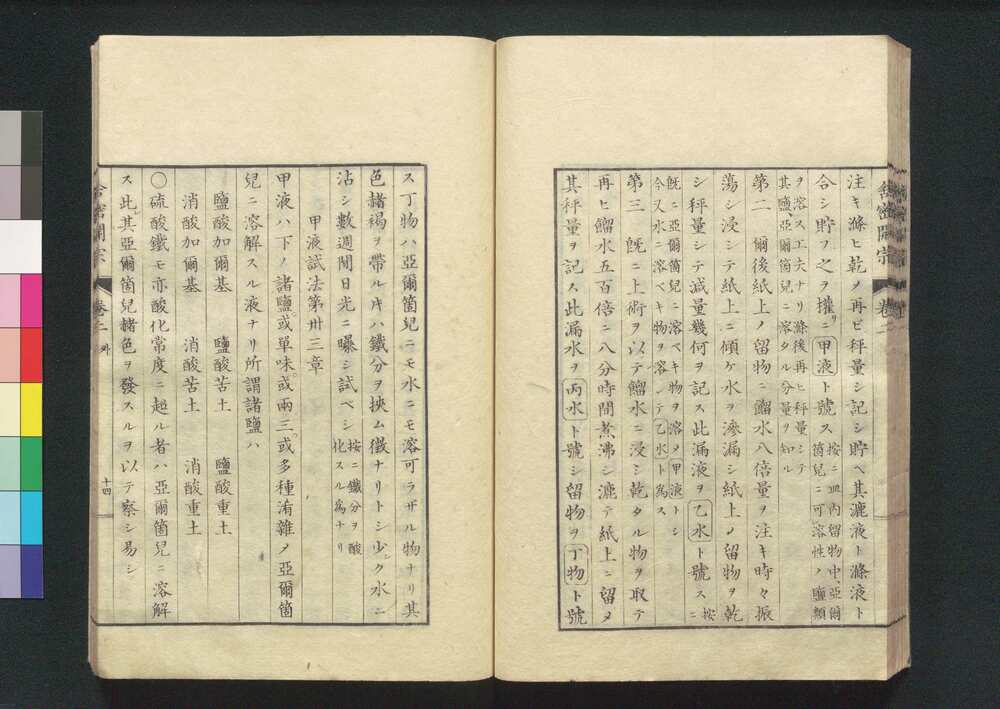 舎密開宗 卷二
注キ滌ヒ乾メ再ビ秤量シ記シ貯ヘ其漉液ト滌液ト
合シ貯フ之ヲ権ニ甲液ト號ス 按ニ皿内留物中、亞爾箇兒ニ可溶性ノ鹽類
ヲ溶スエ夫ナリ滌後再ヒ秤量シテ其鹽、亞爾箇兒ニ溶タル分量ヲ知ル
第二 爾後紙上ノ留物ニ餾水八倍量ヲ注キ時々振
蕩シ浸シテ紙上ニ傾ケ水ヲ滲漏シ紙上ノ留物ヲ乾
シ秤量シテ減量幾何ヲ記ス此漏液ヲ乙水ト號ス 按ニ
既ニ亞爾箇兒ニ溶ベキ物ヲ溶ヲ甲液トシ今又水ニ溶ベキ物ヲ溶ンテ乙水ト為ス
第三 既ニ上術ヲ以テ餾水ニ浸シ乾タル物ヲ取テ
再ヒ餾水五百倍ニ八分時間煮沸シ漉テ紙上ニ留メ
其秤量ヲ記ス此漏水ヲ丙水ト號シ留物ヲ丁物ト號
ス丁物ハ亞爾箇兒ニモ水ニモ溶可ラザル物ナリ其
色赭褐ヲ帶ル片ハ鐵分ヲ挾ム徴ナリトシ少ク水ニ
沾シ數週間日光ニ曝シ試ベシ 按ニ鐵分ヲ酸化スル為ナリ
甲液試法第卅三章
甲液ハ下ノ諸鹽或單味或兩三或多種淆雜ノ亞爾箇
兒ニ溶解スル液ナリ所謂諸鹽ハ
鹽酸加爾基 鹽酸苦土 鹽酸重土
消酸加爾基 消酸苦土 消酸重土
○硫酸鐵モ亦酸化常度ニ超ル者ハ亞爾箇兒ニ溶解
ス此其亞爾箇兒赭色ヲ發スルヲ以テ察シ易シ
舎密開宗 卷二 外 十四